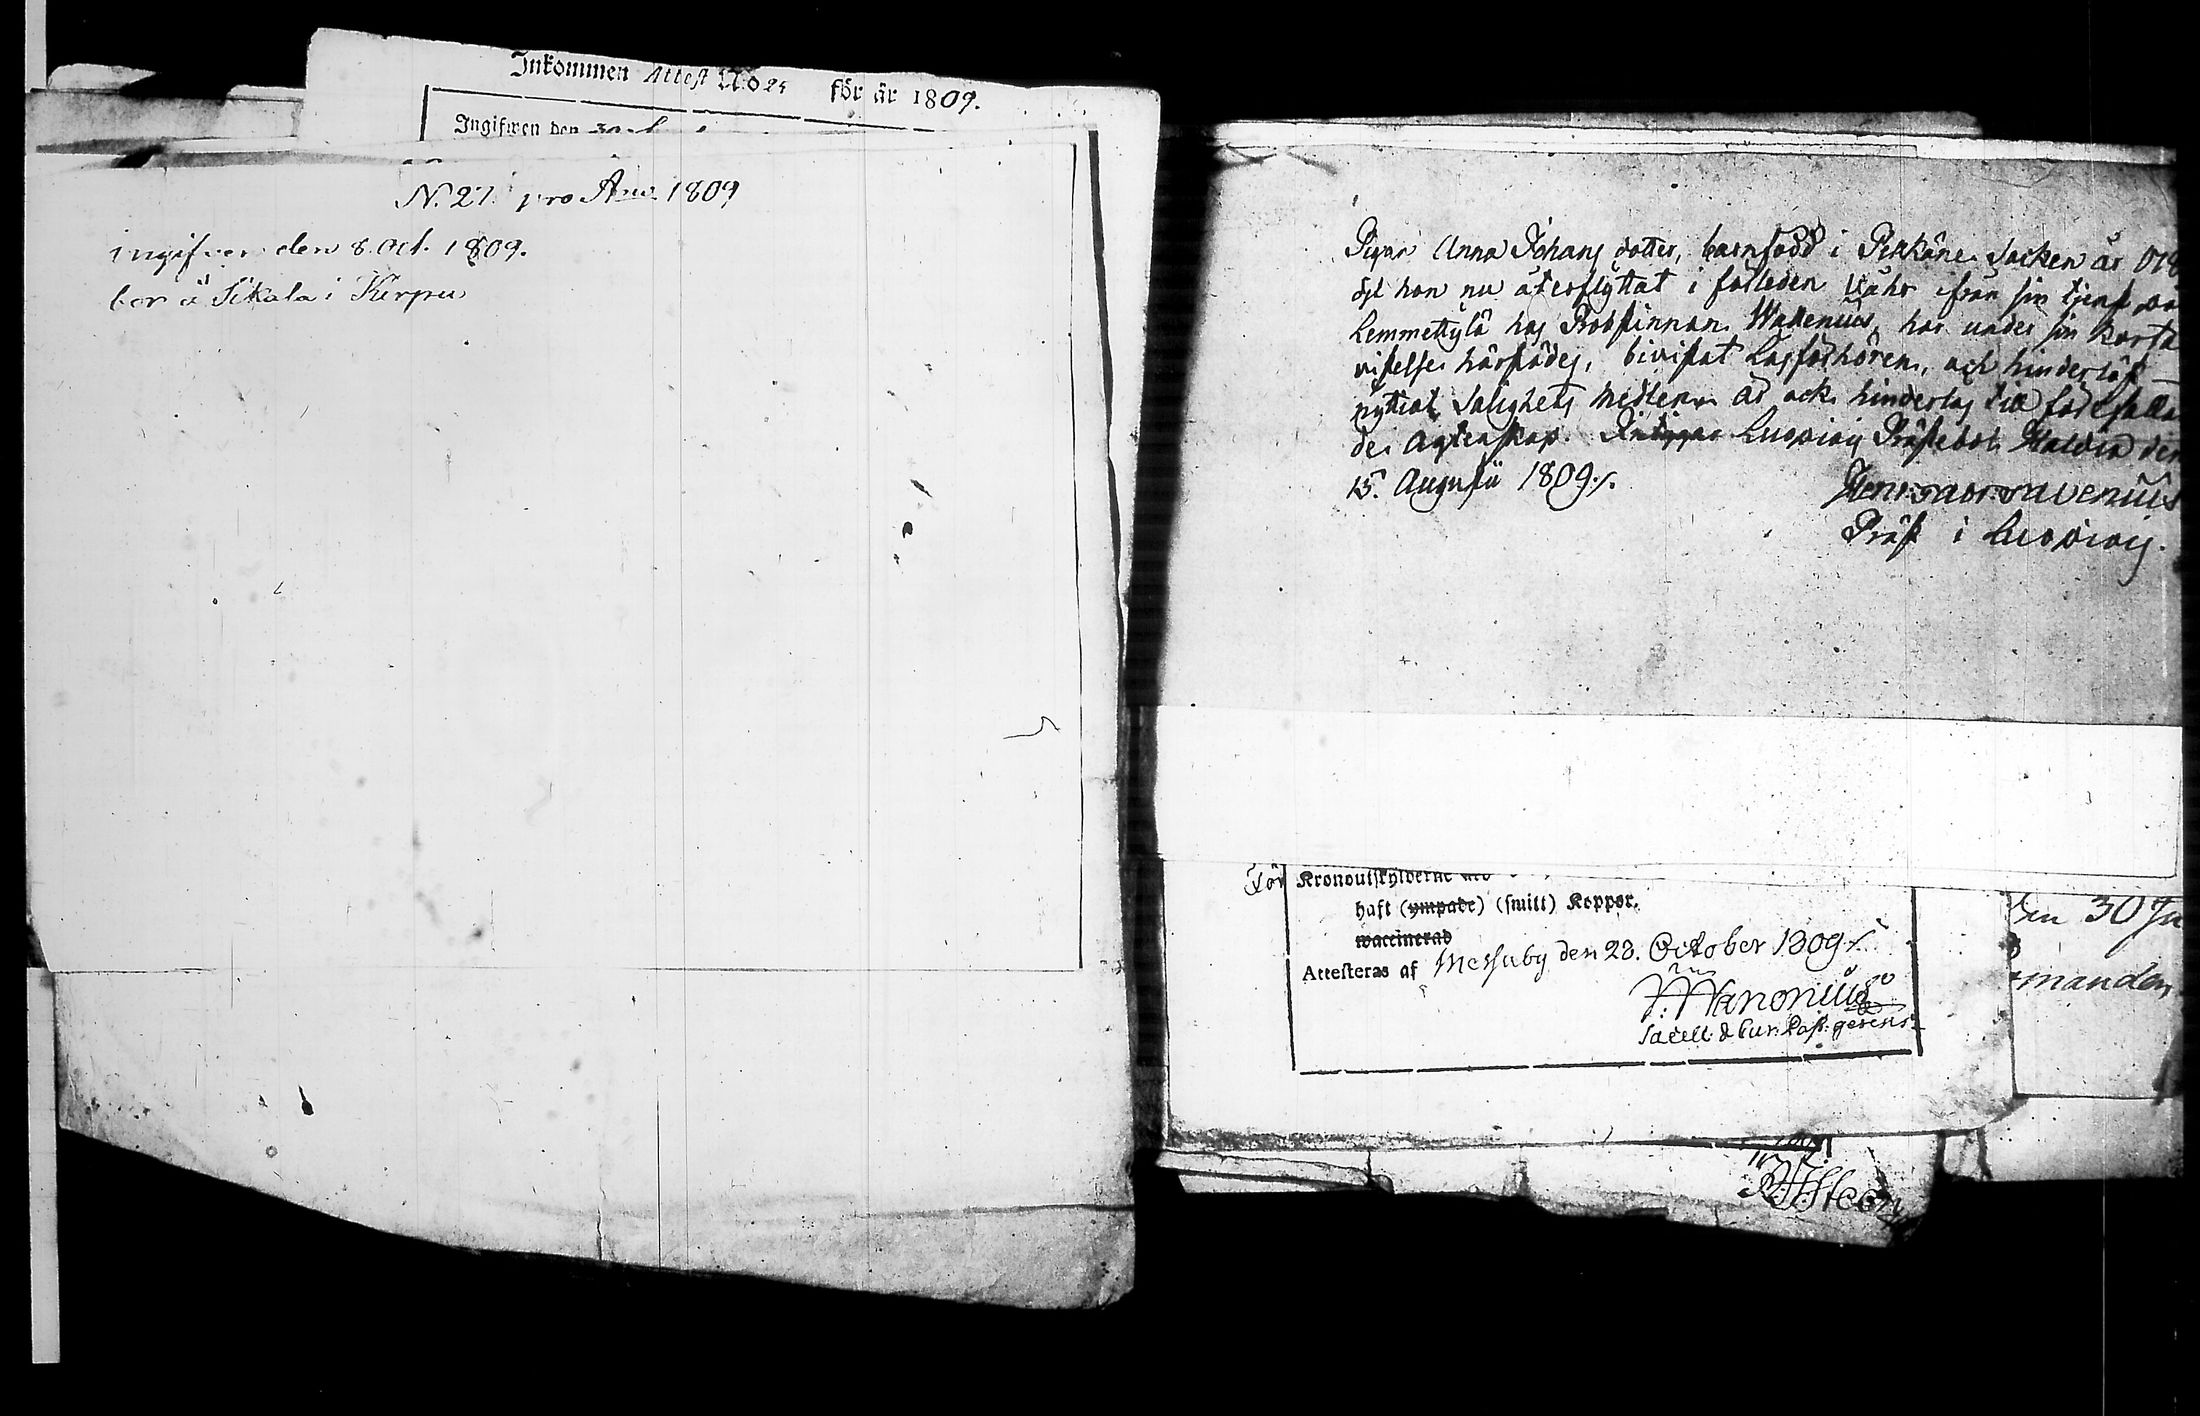 Inkommen Attest N:o för år 1809.
Ingifwen den
N. 27. pro Ano 1809
ingifven den 8. Oct. 1809.
bor å Sikala i Kirpu
Pigan Anna Johans dotter, barnfödd i Pelkäne Socken år
dit hon nu återflyttat i förleden Wåhr ifrån sin tjenst
Lemmettylä hos Probstinnan Wallenius, har under sin korta
vistelse härstädes, bivistat Läsförhören, och hinderlöst
nyttiat Salighets medlen, är ock hinderlös till förefallan
de Ägtenskap. Luopiois Prästebol Haltia den
15. Augusti 1809./.
Präst i Luopiois.
För Kronoutskylderne
haft (ympade) (smitt) Koppor.
waccinerad
Attesteras af Messuby den 23. October 1809./.
Sacell. & Cur. Past. gerens
den 30 Ju
manden